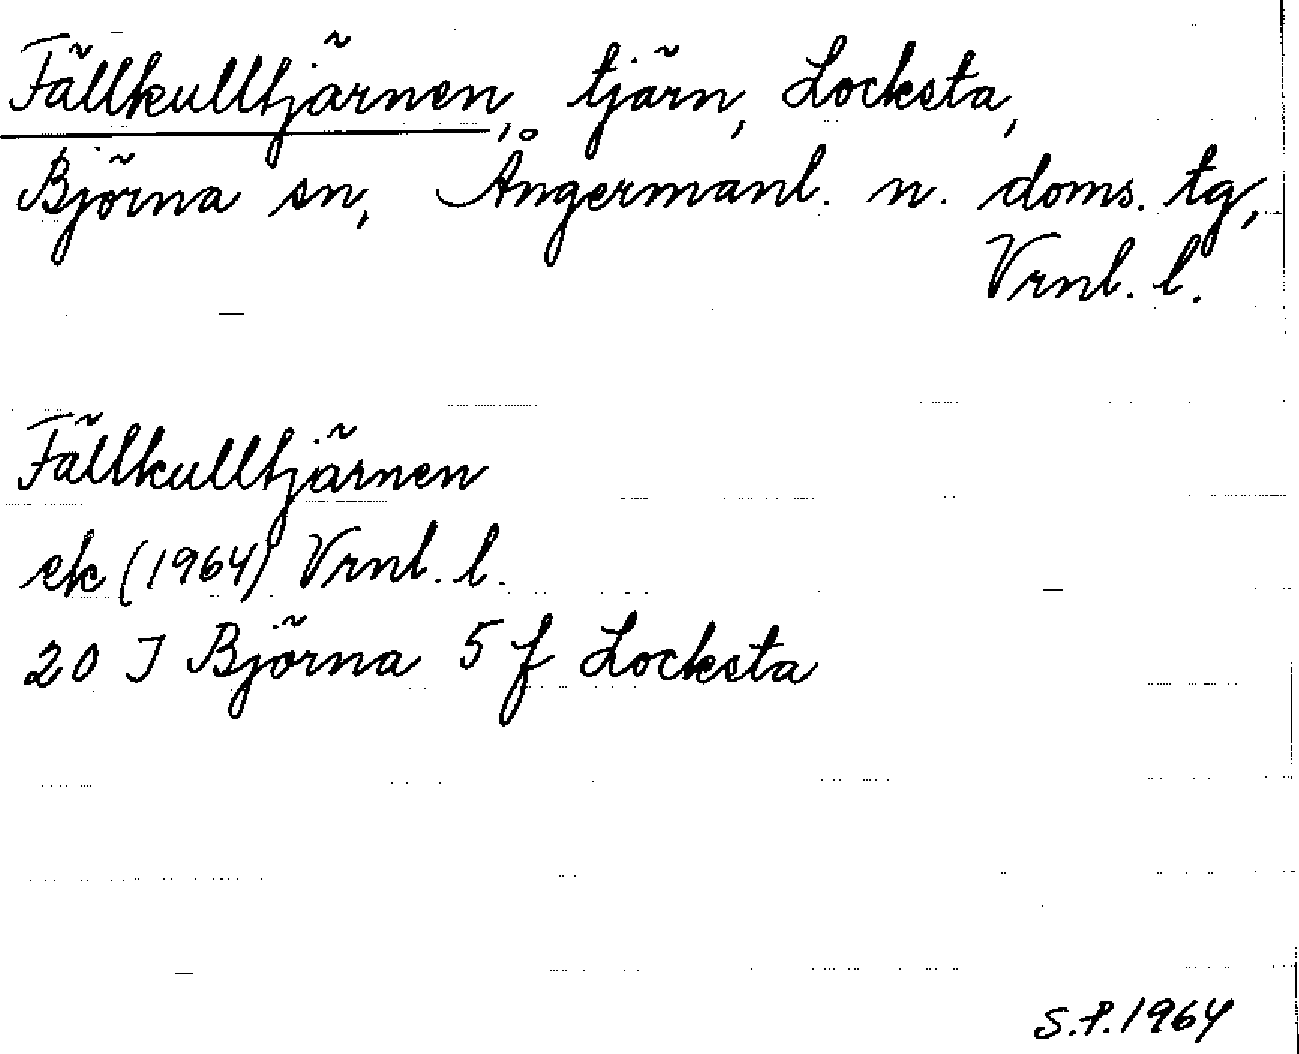 Fällkulltjärnen, tjärn, Locksta,
Björna sn, Ångermanl. n. doms. tg,
Vrnl. l.
Fällkulltjärnen
ek (1964) Vrnl. l.
20 I Björna 5 f Locksta
S.P. 1964